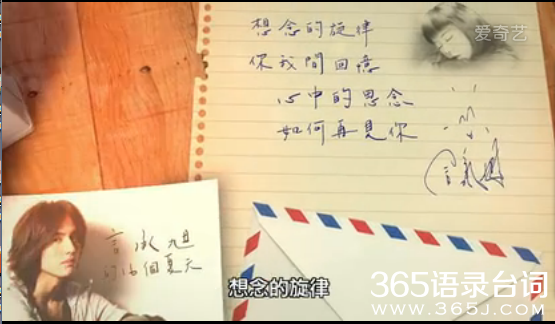 爱奇艺
想念的旋律
你我間回憶
心中的思念
如何再見你
言承旭
16個夏天
想念的旋律
365语录台词
WWW.365J.COM